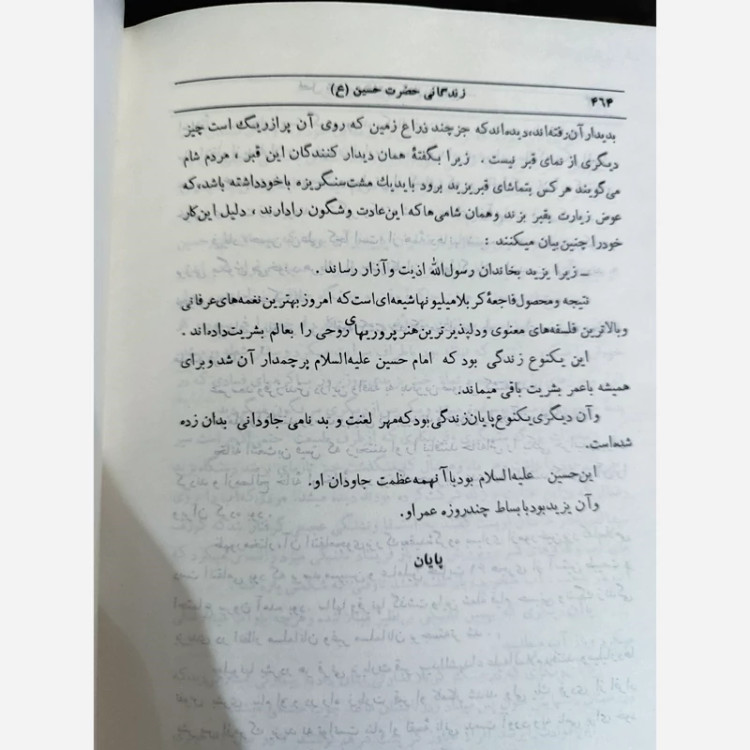 زندگانی حضرت حسین (ع)
۴۶۴
بدیدار آن رفته‌اند، دیده‌اند که جز چند ذراع زمین که روی آن پر از ریگ است چیز
دیگری از نمای قبر نیست . زیرا بگفتهٔ همان دیدار کنندگان این قبر ، مردم شام
می‌گویند هر کس بتماشای قبر یزید برود باید یك مشت سنگریزه با خود داشته باشد، که
عوض زیارت بقبر بزند و همان شامی‌ها که این عادت و شگون را دارند ، دلیل این کار
خود را چنین بیان میکنند :
ـ زیرا یزید بخاندان رسول‌الله اذیت و آزار رساند .
نتیجه و محصول فاجعهٔ کربلا میلیونها شیعه‌ای است که امروز بهترین نغمه‌های عرفانی
و بالاترین فلسفه‌های معنوی و دلپذیرترین هنرپروریهای روحی را بعالم بشریت داده‌اند .
این یکنوع زندگی بود که امام حسین علیه‌السلام پرچمدار آن شد و برای
همیشه با عمر بشریت باقی میماند.
و آن دیگری یکنوع پایان زندگی بود که مهر لعنت و بد نامی جاودانی بدان زده
شده است.
این حسین علیه‌السلام بود با آنهمه عظمت جاودان او.
و آن یزید بود با بساط چند روزه عمر او.
پایان